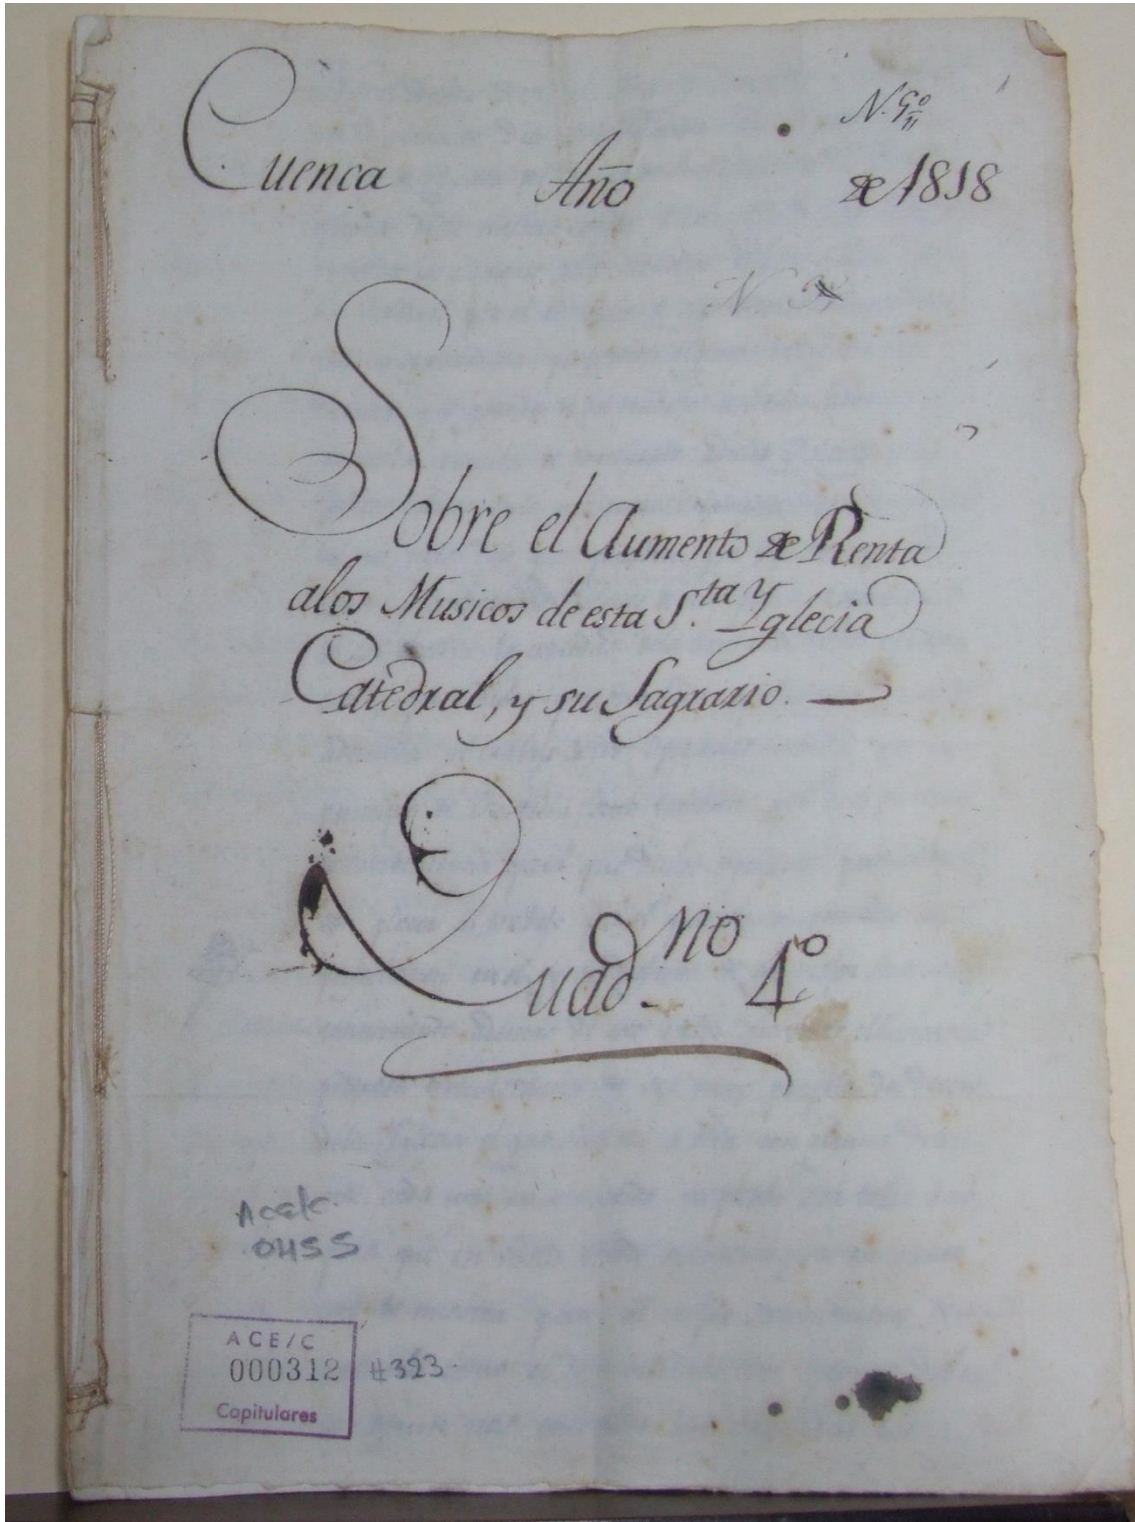 N. 9º
Cuenca Año de 1818
N
Sobre el Aumento de Renta
alos Musicos de esta S.ta Yglecia
Catedral, y su Sagrario.
Quad.no 4º
Ace/c.
0455
ACE/C
000312 #323.
Capitulares